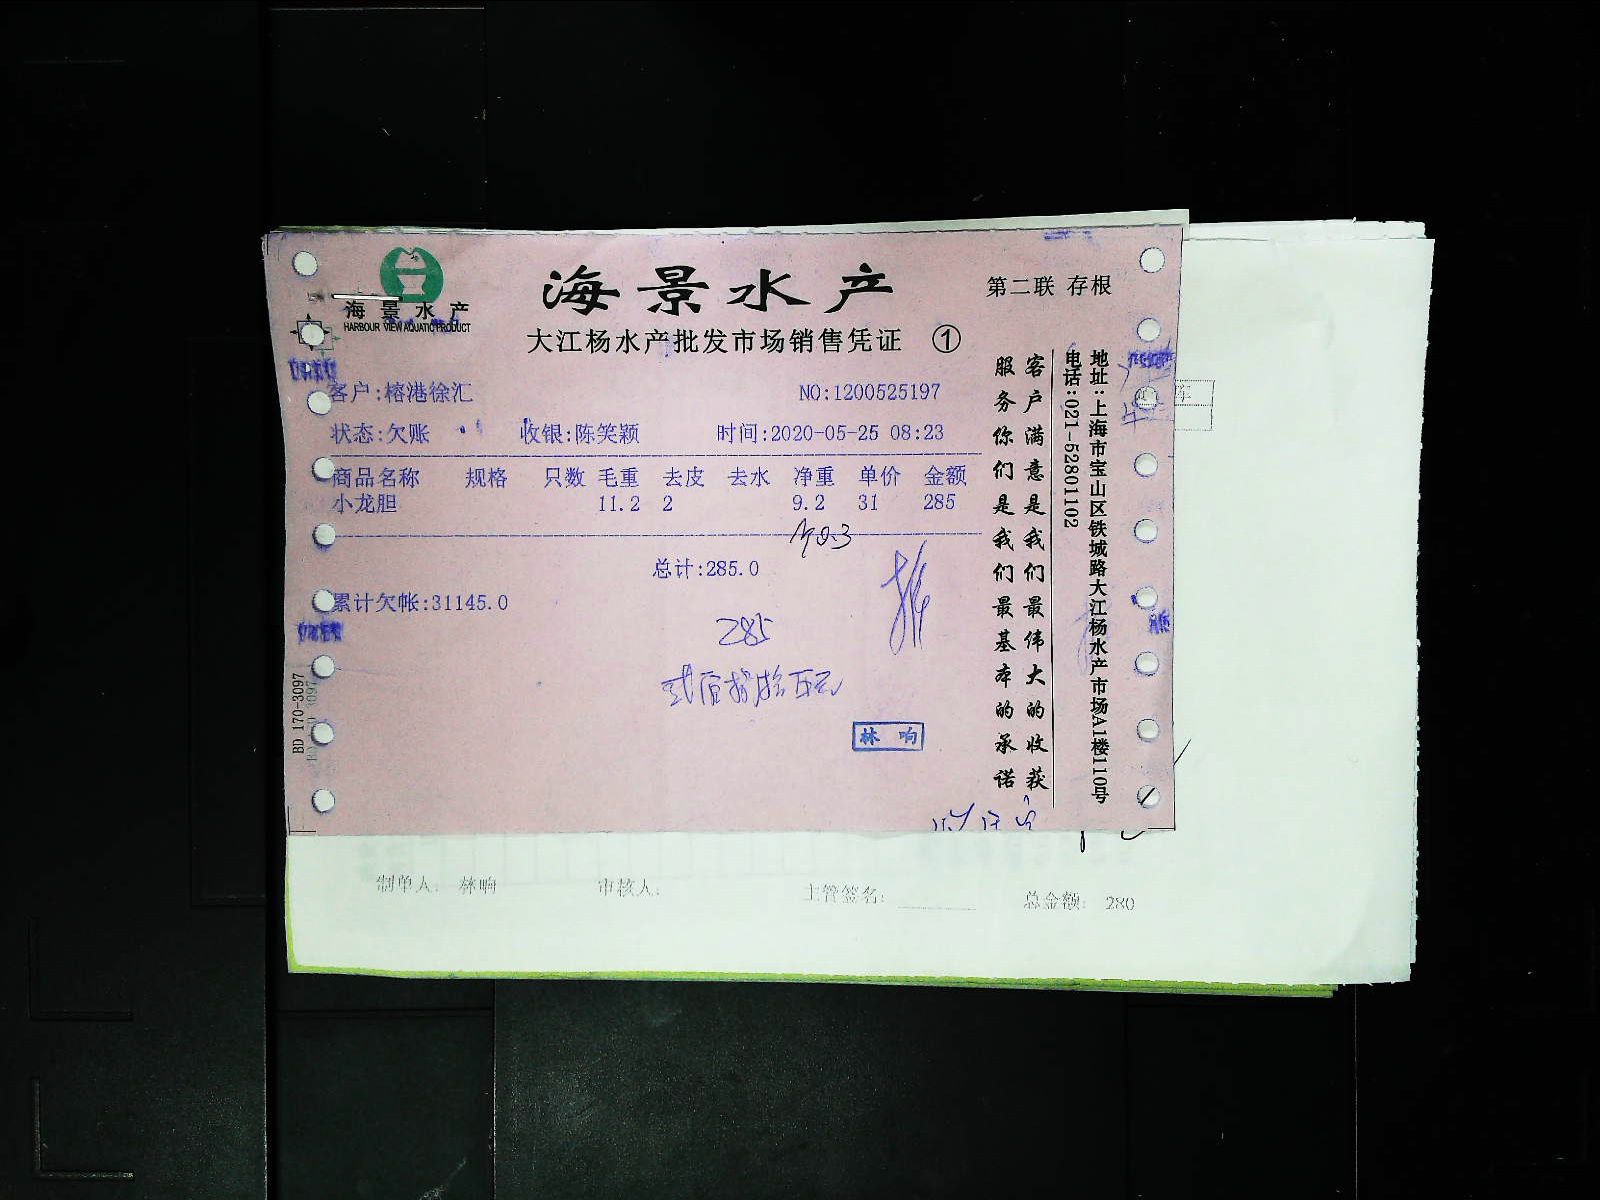 海景水产
HARBOUR VIEW AQUATIC PRODUCT
海景水产
第二联 存根
大江杨水产批发市场销售凭证 ①
客户:榕港徐汇 NO:1200525197
状态:欠账 收银:陈笑颖 时间:2020-05-25 08:23
商品名称 规格 只数 毛重 去皮 去水 净重 单价 金额
小龙胆 11.2 2 9.2 31 285
总计:285.0
累计欠帐:31145.0
285
林响
客户满意是我们最伟大的收获
服务你们是我们最基本的承诺
地址:上海市宝山区铁城路大江杨水产市场A1楼110号
电话:021-52801102
BD 170-3097
制单人: 林响 审核人: 主管签名: 总金额: 280